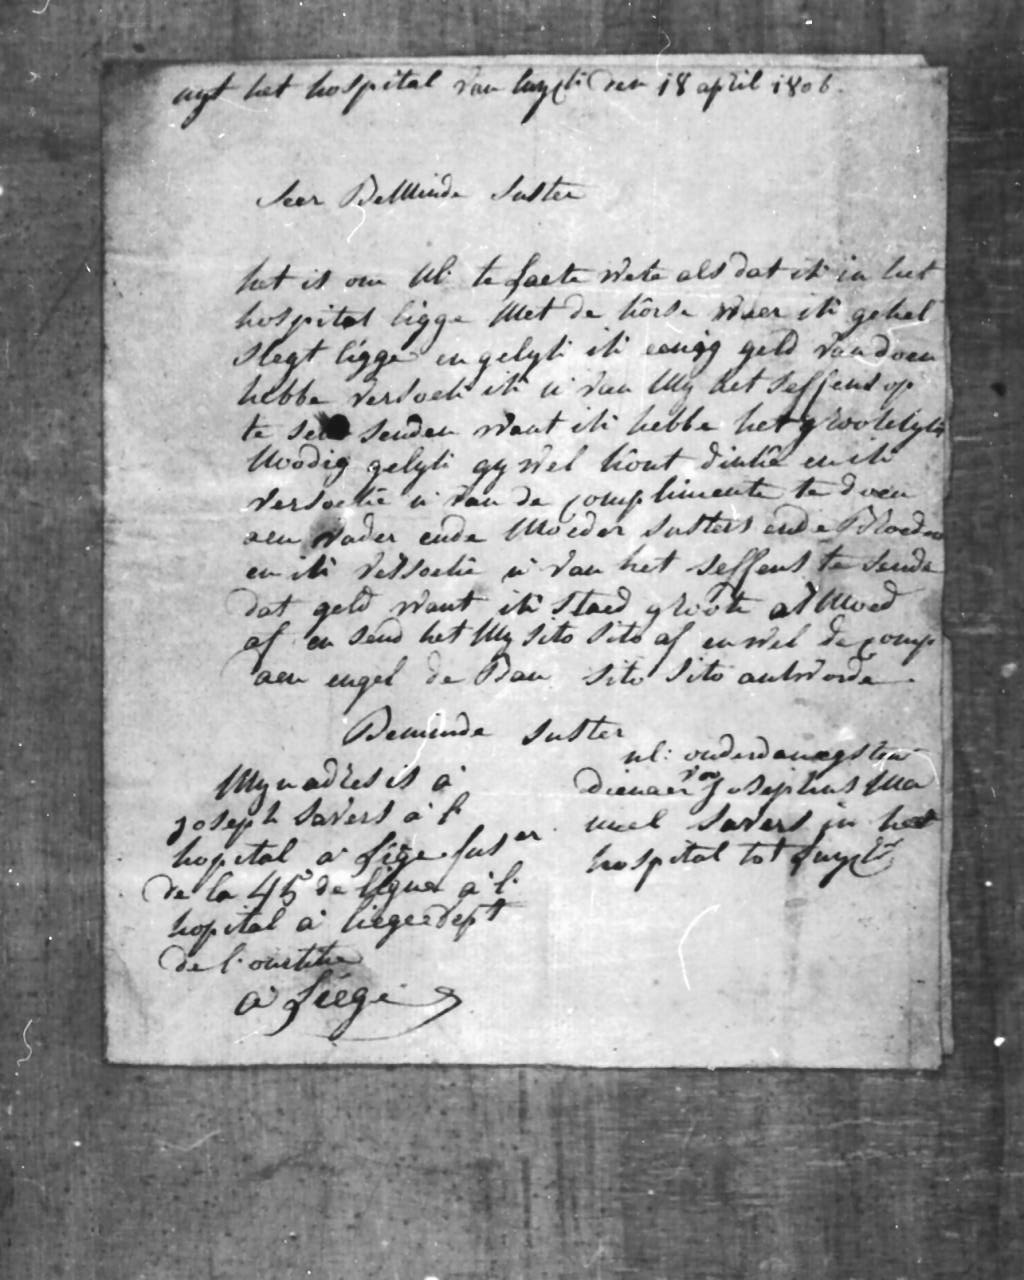 uyt het hospital van luyck den 18 april 1806.
Seer Beminde Suster
het is om ul: te laete wete als dat ik in het
hospital ligge met de korse waer ik gehel
slegt ligge en gelyk ik eenig geld van doen
hebbe versoek ik u van my het seffens op
te senden want ik hebbe het grootelyks
noodig gelyk gy wel kont dinke en ik
versoeke u van de complimente te doen
aen vader ende moeder susters ende Broeder
en ik versoeke u van het seffens te sende
dat geld want ik staed groote armoed
af en send het my sito sito af en wel de comp
aen engel de Bau sito sito antworde
Beminde suster
ul: onderdaenegsten
dienaer van Josephus Ma
nuel Savers in het
hospital tot luyck
Myn adres is á
joseph Savers á l
hopital a liége fuser
de la 45 de ligne á l.
hopital á liege dept
de l'ourthe
á Liége